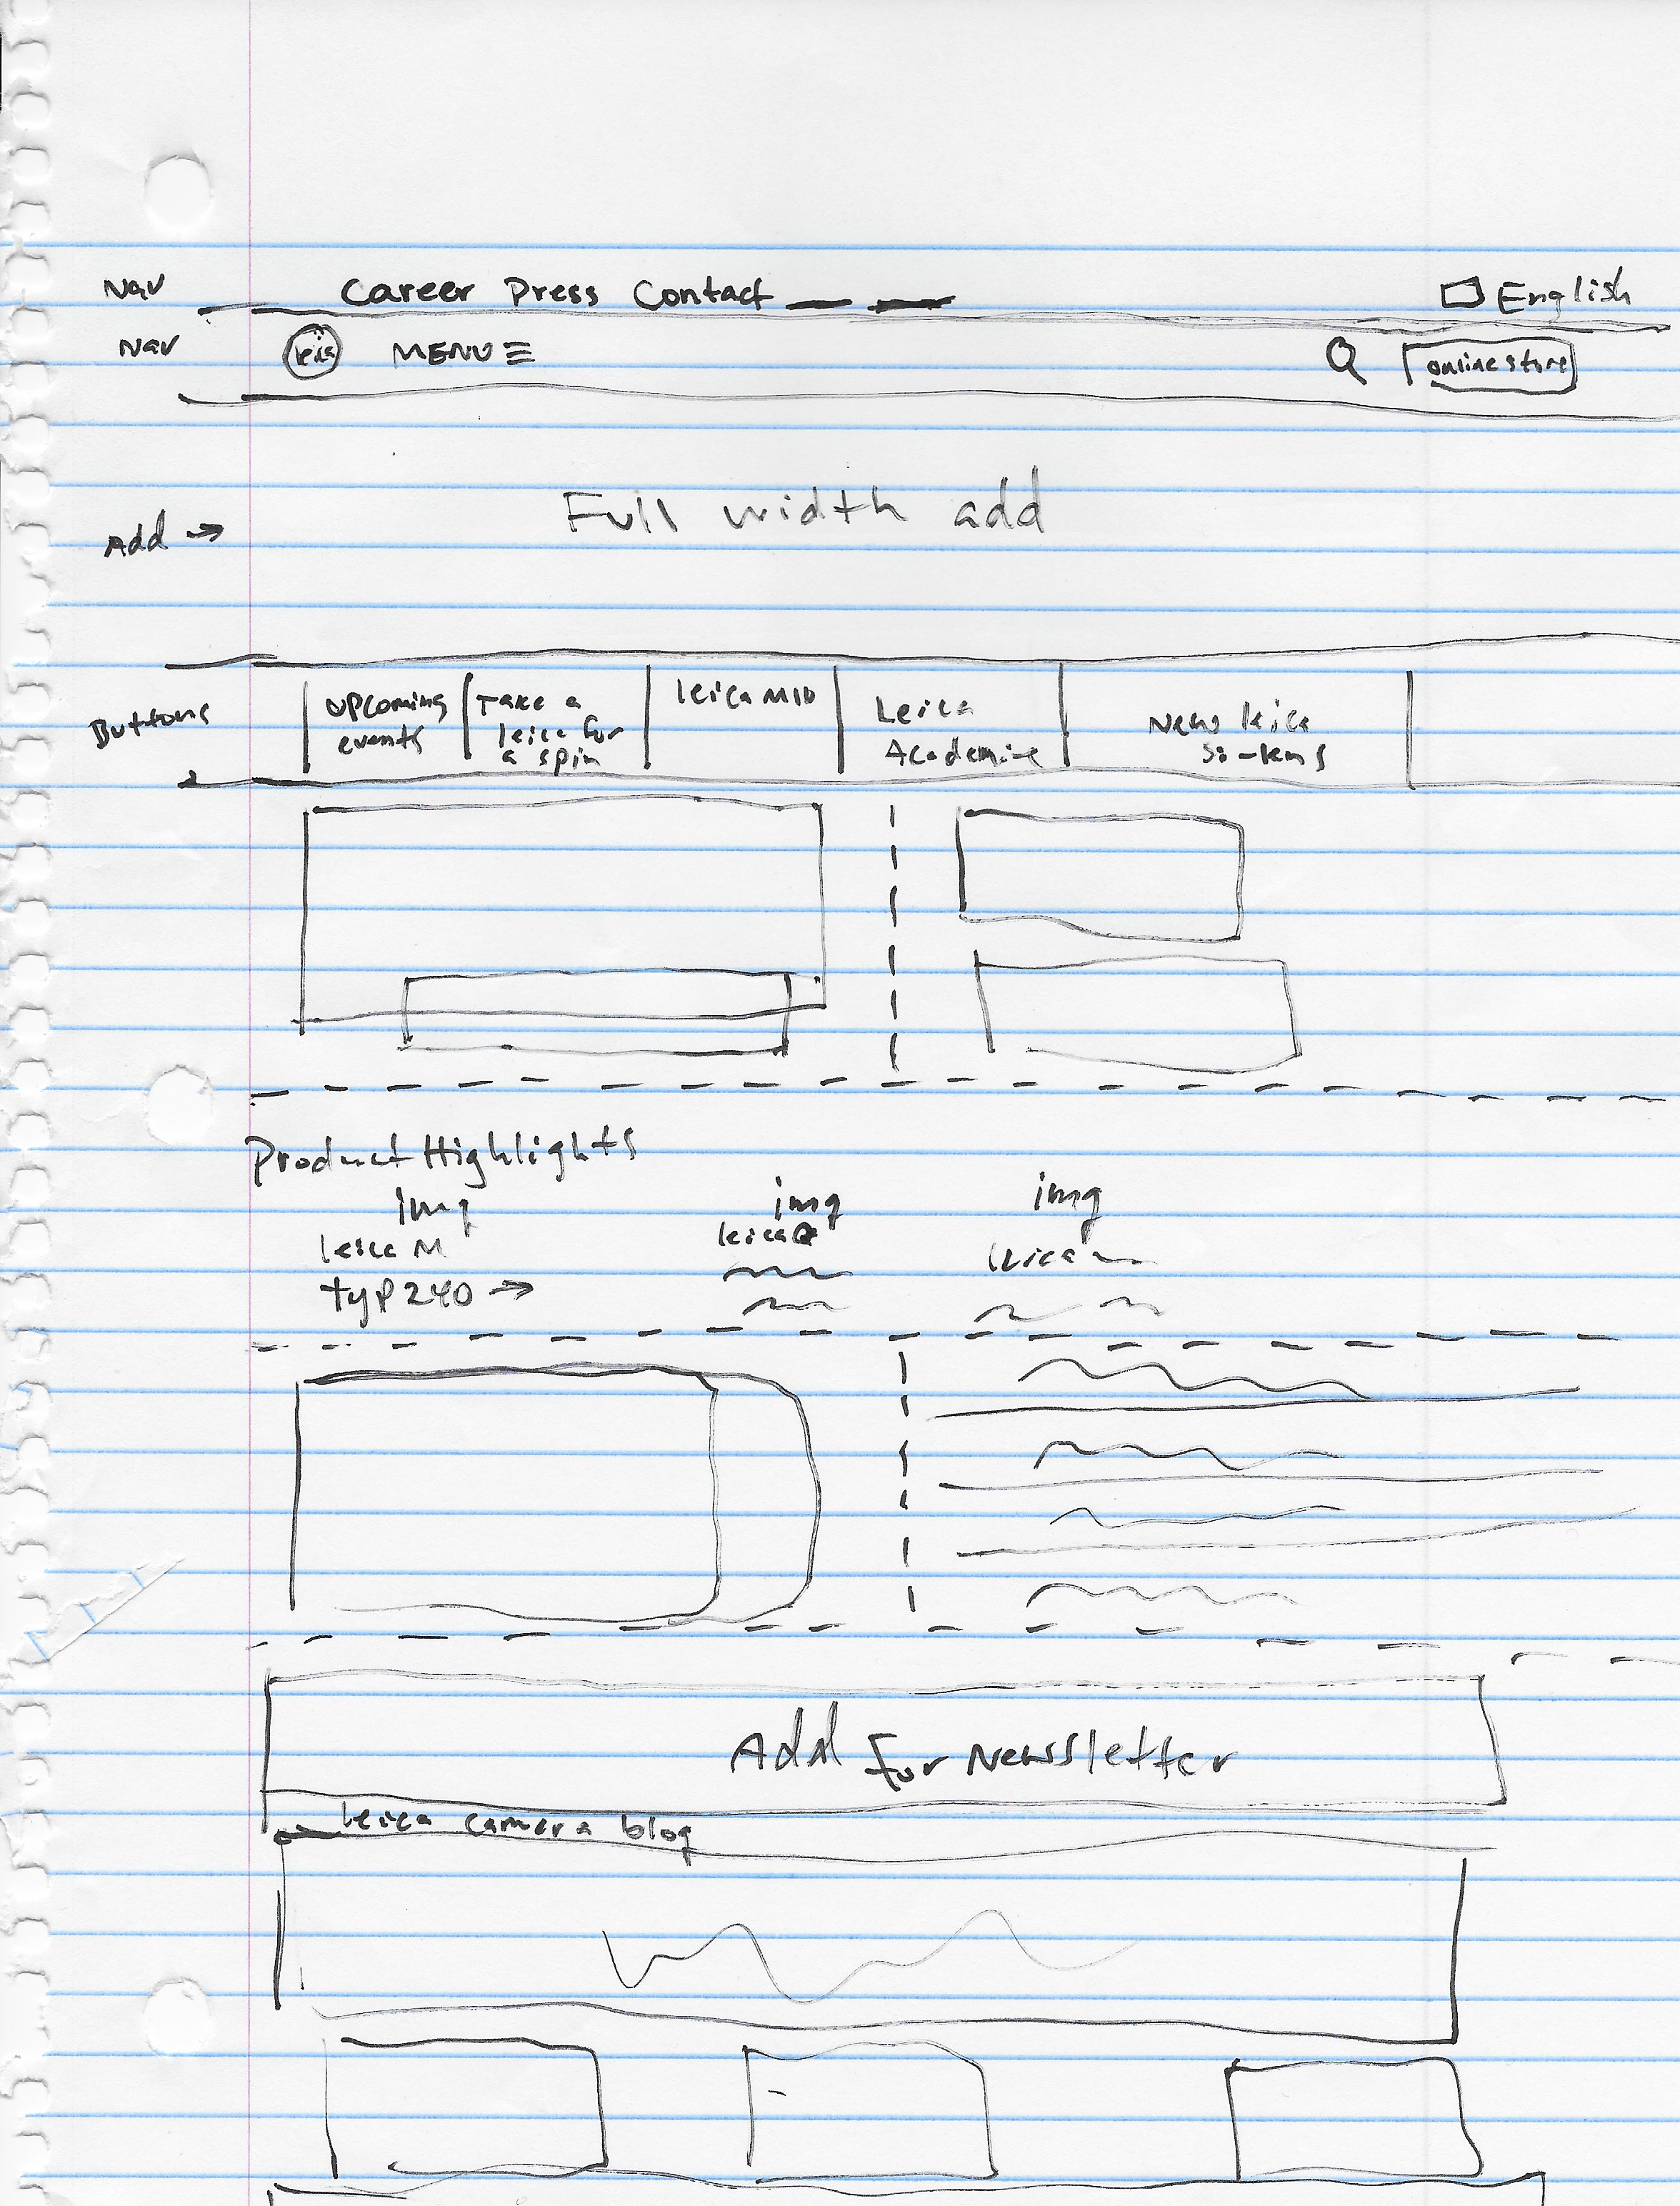 Nav Career Press Contact English
Nav leica MENU Q online store
Full width add
Add →
Buttons
upcoming events
Take a leica for a spin
leica M10
Leica Academie
New leica
Product Highlights
img img img
leica M leica Q leica
typ 240 →
Add For Newsletter
leica camera blog